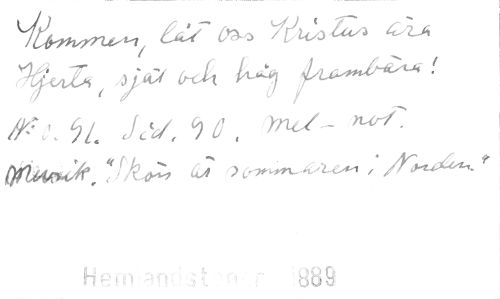 Kommen, låt oss Kristus ära
Hjerta, själ och håg frambära!
N:o 91. Söd. 90. Mel-not.
Musik. "Skön är sommaren i Norden."
Hemlandstoner 1889